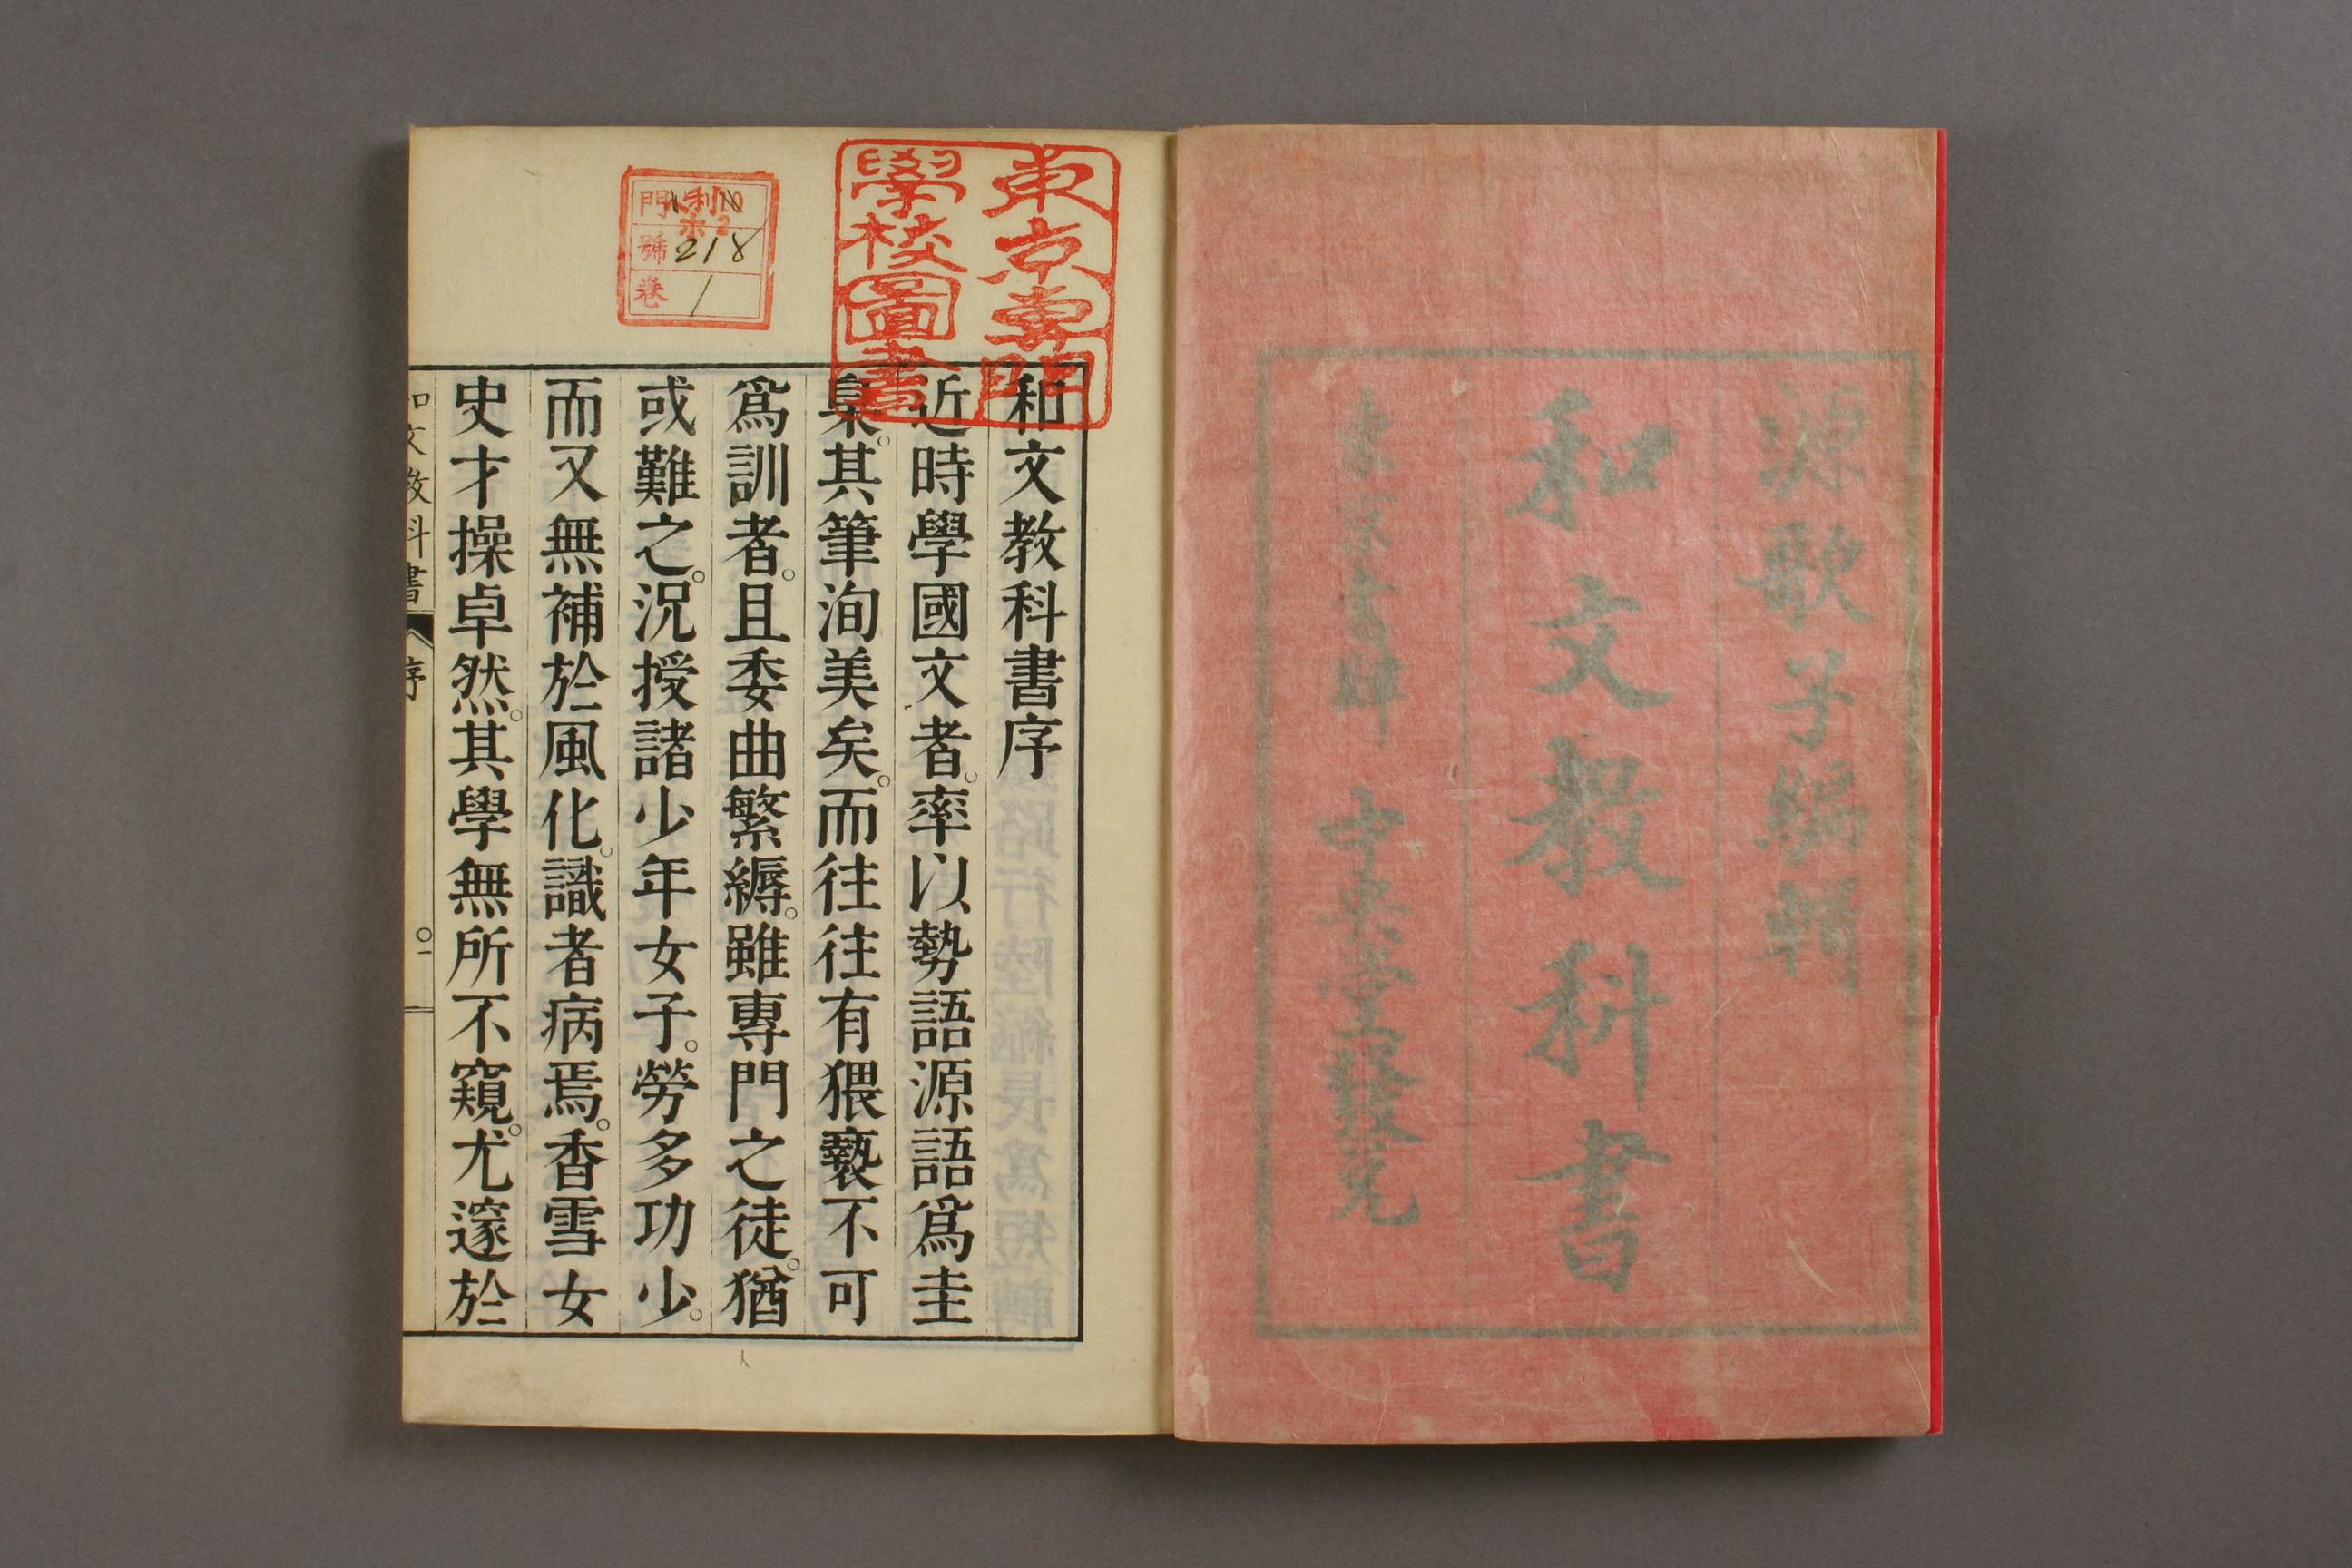 源歌子編輯
和文教科書
東京書肆 中央堂發兌
東京專門
學校圖書
門
號 218
巻 1
和文教科書序
近時學國文者。率以勢語源語爲圭
臬。其筆洵美矣。而往往有猥褻不可
爲訓者。且委曲繁縟。雖專門之徒。猶
或難之。況授諸少年女子。勞多功少。
而又無補於風化。識者病焉。香雪女
史才操卓然。其學無所不窺。尤邃於
和文教科書 序 一